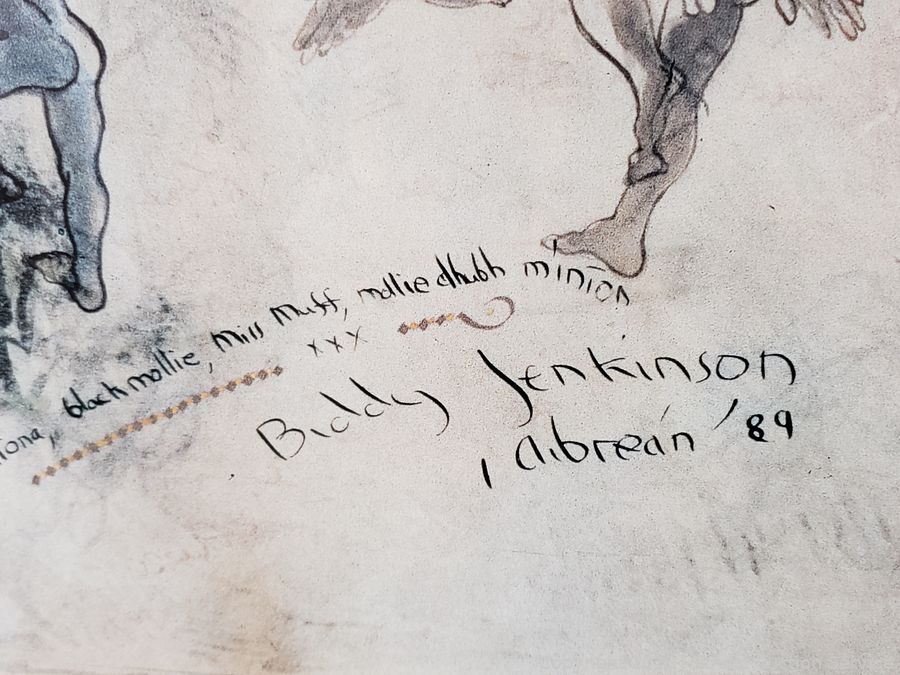 black mollie, Miss Muff, mollie dhubh minion
xxx
Biddy Jenkinson
1 Aibreán '89